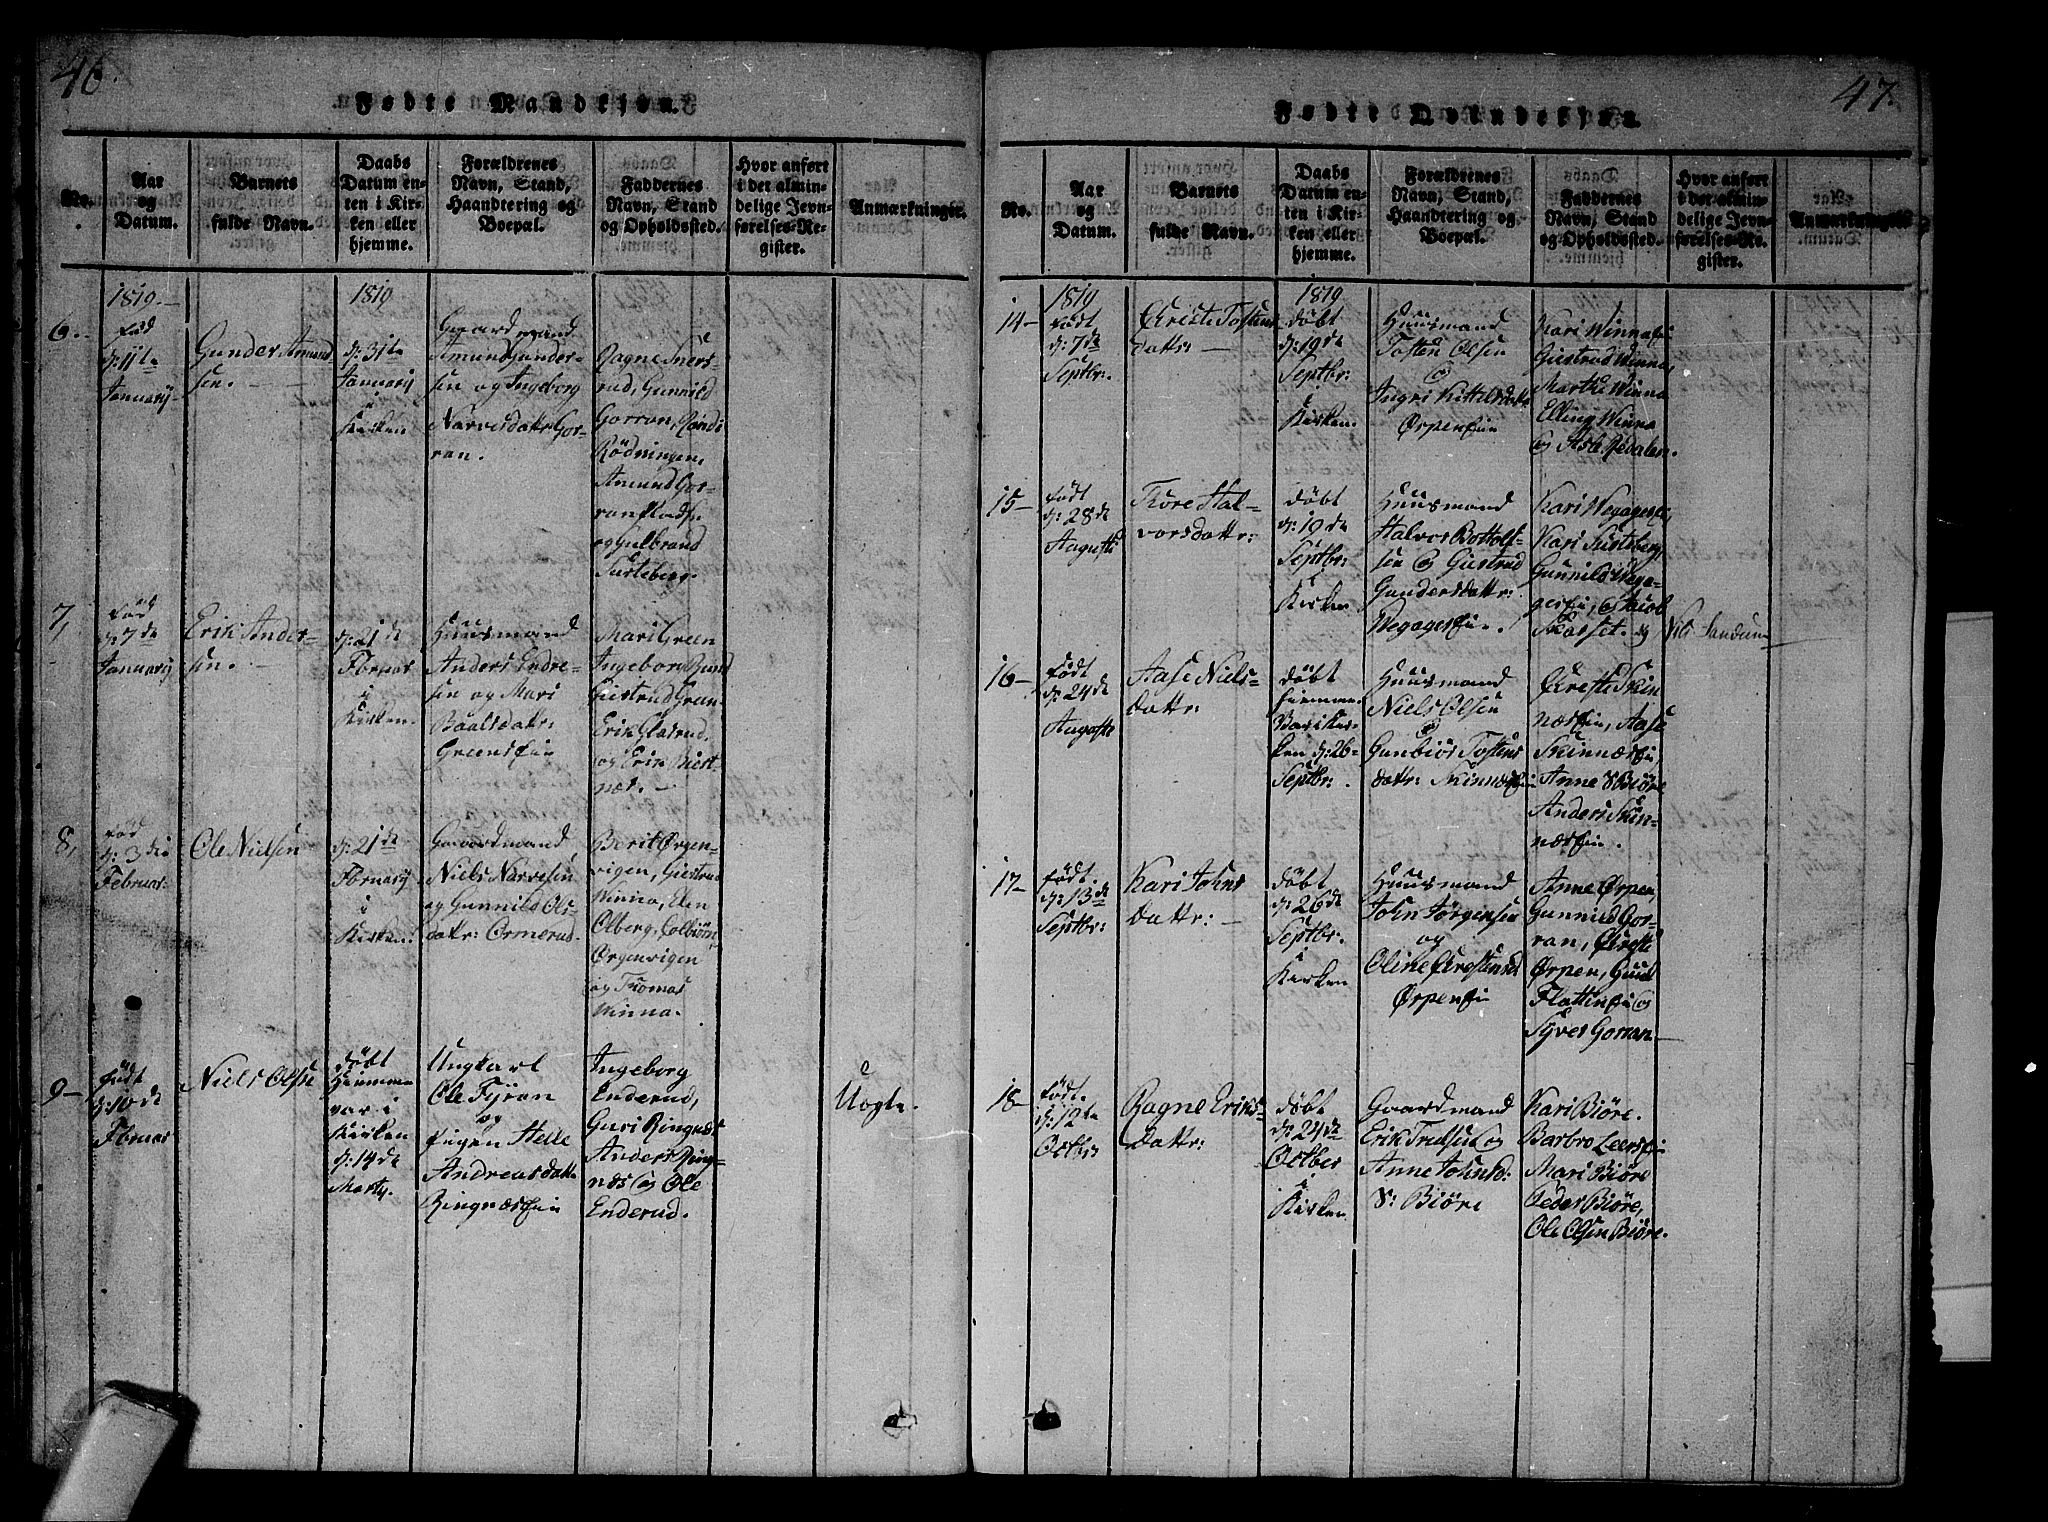 46.
Fødte Mandkjøn.
No.
Aar
og
Datum.
Barnets
fulde Navn.
Daabs
Datum en-
ten i Kir-
ken eller
hjemme.
Forældrenes
Navn, Stand,
Haandtering og
Boepæl.
Faddernes
Navn, Stand
og Opholdssted.
Hvor anført
i det almin-
delige Jevn-
førelses-Re-
gister.
Anmærkninger.
6.
1819.
Fød
d: 11te
Januarij
Gunder Amund
sen.
1819
d: 31te
Januarij
i
Kirken
Gaardmand
Amund Gunder-
sen og Ingeborg
Narvesdatr: Gor-
ran.
Ragne Sners-
rud, Gunnild
Gorran, Randi
Rödningen,
Amund Gor-
ran
og Gulbrand
Surteberg.
7,
Fød
d: 7de
Januarij
Erik Anders-
sen.
d: 21de
Februar
i
Kirken.
Huusmand
Anders Endre-
sen og Mari
Baalsdatr:
Greenseie
Mari Green
Ingeborg Rund
Giertrud Green
Erik Glasrud
og Erik Biert-
næs.
8,
Fød
d: 3die
Februar.
Ole Nielsen
d: 21de
Februarij
i
Kirken.
Gaardmand,
Niels Narvesen
og Gunnild Ols-
datr: Ormerud.
Berit Ørgen-
vigen, Giertrud
Winna, Elen
Olberg, Colbiörn
Ørgenvigen
og Thomas
Winna.
9
født
d: 10de
Februar
Niels Olsen
döbt
Hiemme
var i
Kirken
d: 14de
Martij.
Ungkarl
Ole Fyran
og
Pigen Helle
Andreasdatr
Ringnæseie
Ingeborg
Enderud,
Guri Ringnæs
Anders Ring-
næs og Ole
Enderud.
Uægte.
47.
Fødte Qvindekjøn.
No.
Aar
og
Datum.
Barnets
fulde Navn.
Daabs
Datum en-
ten i Kir-
ken eller
hjemme.
Forældrenes
Navn, Stand,
Haandtering og
Boepæl.
Faddernes
Navn, Stand
og Opholdssted.
Hvor anført
i det almin-
delige Jevn-
førelses-Re-
gister.
Anmærkninger
14
1819
født
d: 7de
Septbr:
Christi Tostens
datr:
1819
döbt
d: 19de
Septbr:
i
Kirken.
Huusmand
Tosten Olsen
og
Ingri Kittelsdatr
Ørpeneie
Kari Winnaei
Giertrud Winna,
Marthe Winna
Elling Winna
og Asle Medalen.
15
født
d: 28de
Augusti
Thore Hal-
vorsdatr:
döbt
d: 19de
Septbr:
i
Kirken
Huusmand
Halvor Bottolf-
sen og Giertrud
Gundersdatr:
Wegagereie.
Kari Wegagerei,
Kari Surteberg,
Gunnild Wega-
gereie, og Jacob
Skarset. og Nils Sandum
16
født
d: 24de
Auguste
Aase Niels-
datr:
döbt
hiemme
Var i Kir-
ken d: 26
Septbr:
Huusmand
Niels Olsen
og
Gunbiör Tostens
datr: Skinnæseie
Christi Skin
næseie, Aase
Skinnæseie,
Anne S Biöre
Anders Skin-
næseie.
17
født.
d: 13de
Septbr:
Kari Johns
datr:
döbt
d: 26de
Septbr.
i
Kirken
Huusmand
John Jörgensen
og
Oline Christensd:
Ørpeneie
Anne Ørpen,
Gunnild Gor-
ran, Christi
Ørpen, Guul
Flatteneie og
Syver Gorran
18
født.
d: 12te
Octbr:
Ragne Eriks-
datr:
döbt
d: 24de
October
i
Kirken
Gaardmand
Erik Trulsen og
Anne Johnsd:
S: Biöre
Kari Biöre.
Barbro Leereie
Mari Biöre
Peder Biöre,
Ole Olsen Biöre.